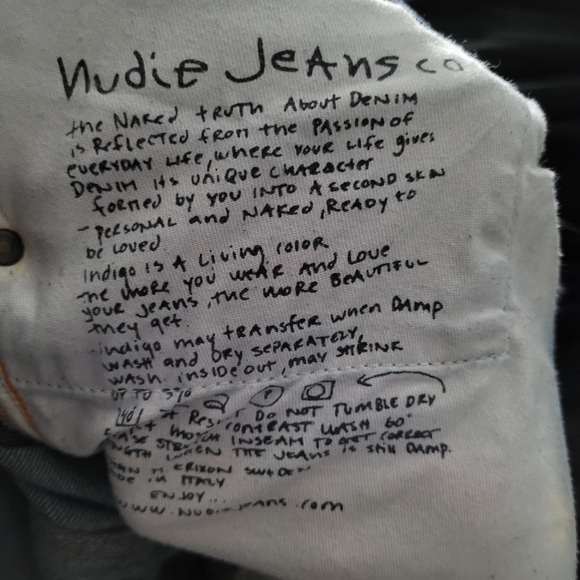 Nudie Jeans co
the NAked tRUTH About DENIM
is REflECTED from the PASSION of
EVERYDAY LIFE, WHERE YOUR LIFE gives
DENIM its UNIQUE CHARACTER
formed by YOU INTO A SECOND SKIN
- PERSONAL and NAKED, READY to
be loved.
Indigo IS A Living COLOR
the more YOU WEAR AND LOVE
YOUR JEANS, the MORE BEAUTIFUL
they get.
- indigo may tRANSFER when DAMP
WASH and DRY SEPARATELY,
WASH inside out, may SHRINK
UP TO
DO NOT TUMBLE DRY
CONTRAST WASH 60°
INSEAM TO GET CORRECT
WHEN THE JEANS is still DAMP.
SWEDEN
in ITALY
ENJOY...
WWW.Nudiejeans.com